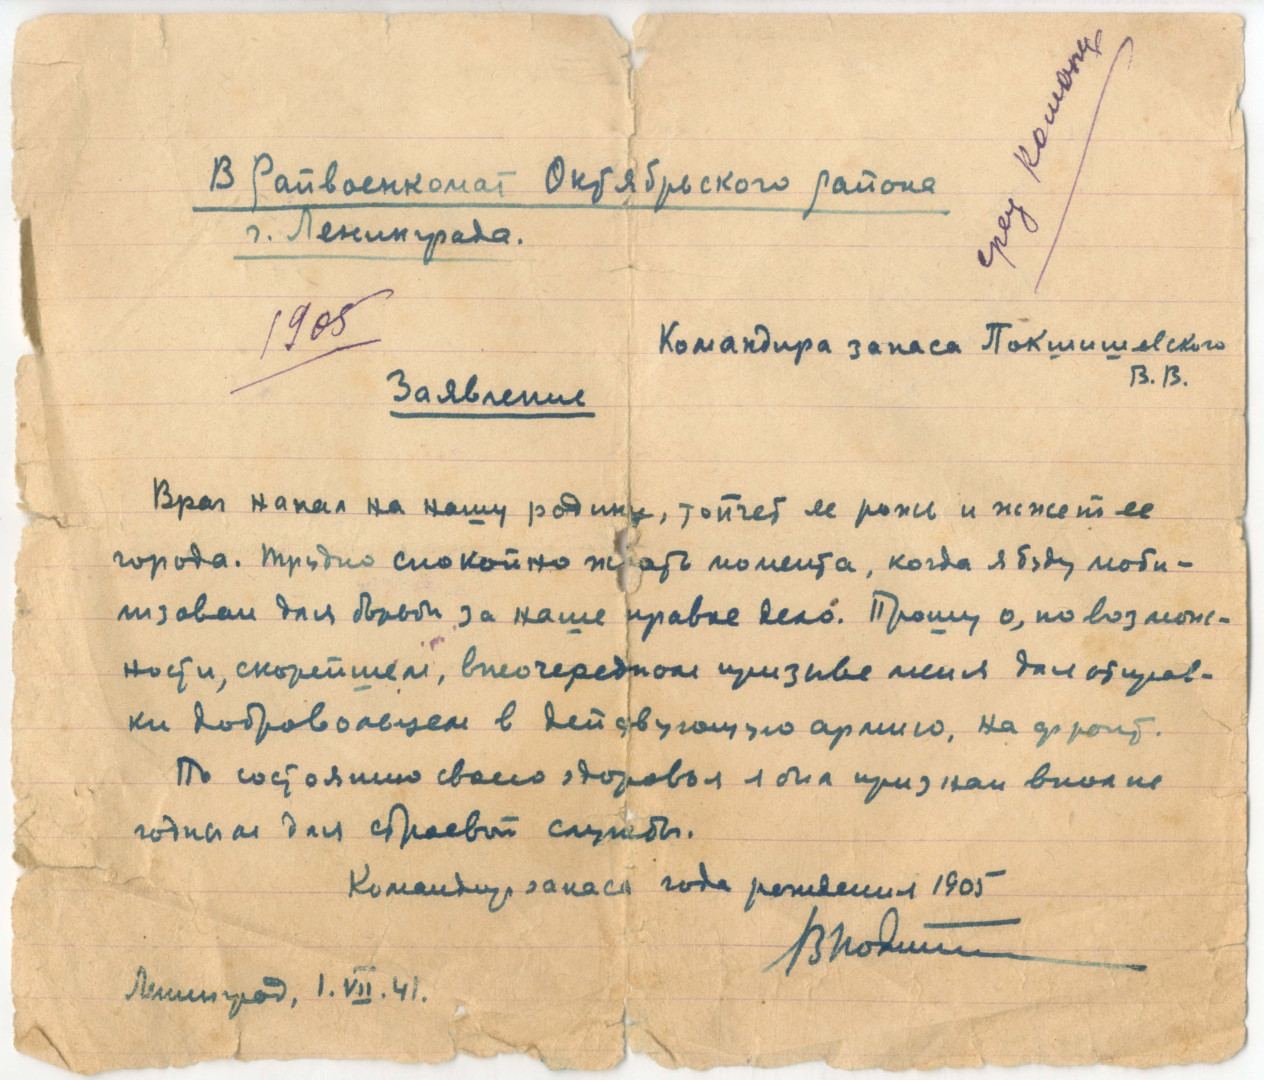 сред команд
В Райвоенкомат Октябрьского района
г. Ленинграда.
1905
Командира запаса Покшишевского
В. В.
Заявление
Враг напал на нашу родину, топчет ее рожь и жжет ее
города. Трудно спокойно ждать момента, когда я буду моби-
лизован для борьбы за наше правое дело. Прошу о, по возмож-
ности, скорейшем, внеочередном призыве меня для отправ-
ки добровольцем в действующую армию, на фронт.
По состоянию своего здоровья я был признан вполне
годным для строевой службы.
Командир запаса года рождения 1905
Ленинград, 1.VII.41.